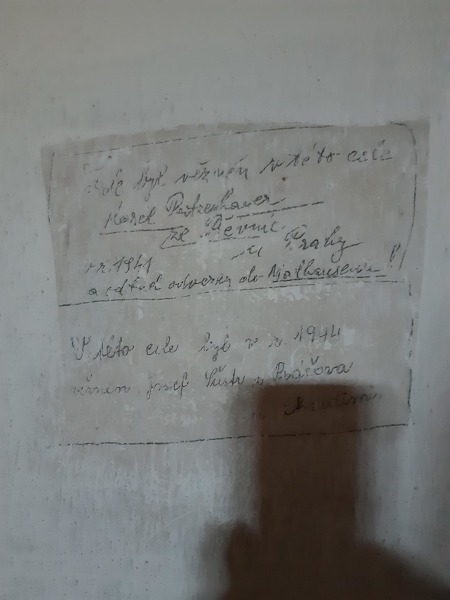 byl vězněn v této cele
Karel
ze Řevnic
u Prahy
v r. 1941
a odtud odvezen do Mathausenu!!
V této cele byl v r. 1944
vězněn Josef Šustr z